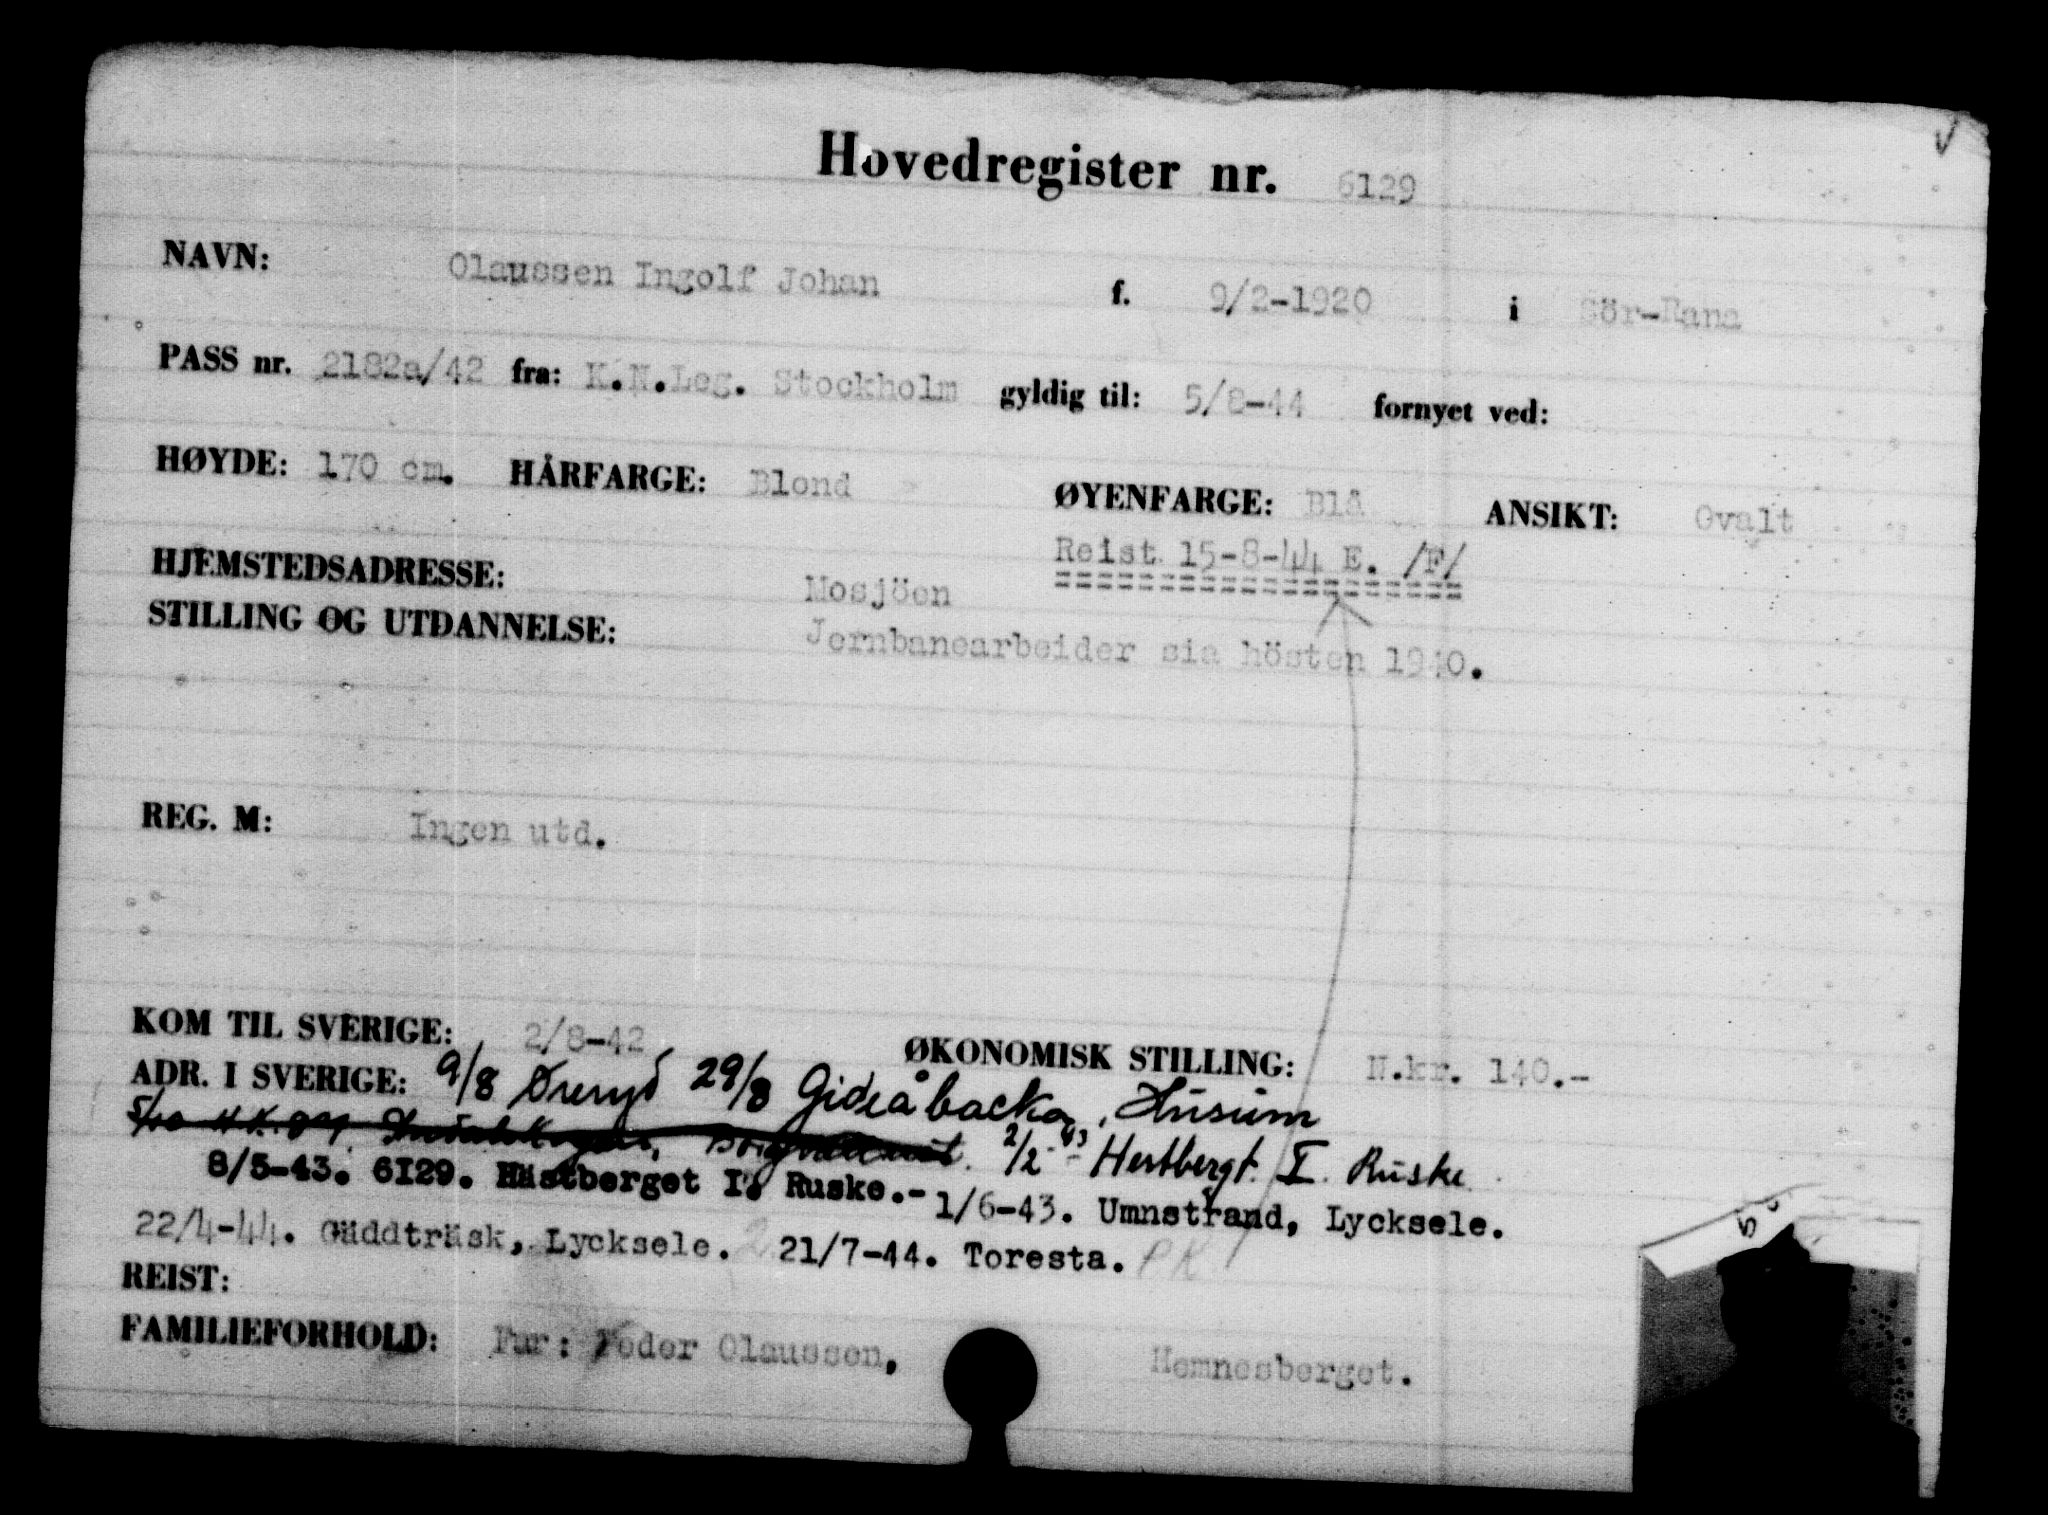 Hovedregister nr. 6129
NAVN: Olaussen Ingolf Johan f. 9/2-1920 i Sör-Rana
PASS nr. 2182a/42 fra: K.N.Leg. Stockholm gyldig til: 5/8-44 fornyet ved:
HØYDE: 170 cm. HÅRFARGE: Blond ØYENFARGE: Blå ANSIKT: Ovalt
Reist 15-8-44 E. /F/
HJEMSTEDSADRESSE: Mosjöen
STILLING OG UTDANNELSE: Jernbanearbeider sia hösten 1940.
REG. M: Ingen utd.
KOM TIL SVERIGE: 2/8-42 ØKONOMISK STILLING: N.kr. 140.-
ADR. I SVERIGE: 9/8 Øreryd 29/8 Gideåbacka, Husum
5/10 2/2-43 Hestbergt. I. Ruske
8/5-43. 6I29. Hästberget I. Ruske.- 1/6-43. Umnstrand, Lycksele.
22/4-44. Gäddträsk, Lycksele. 2 21/7-44. Toresta. PK
REIST:
FAMILIEFORHOLD: Far: Peder Olaussen, Hemnesberget.
5